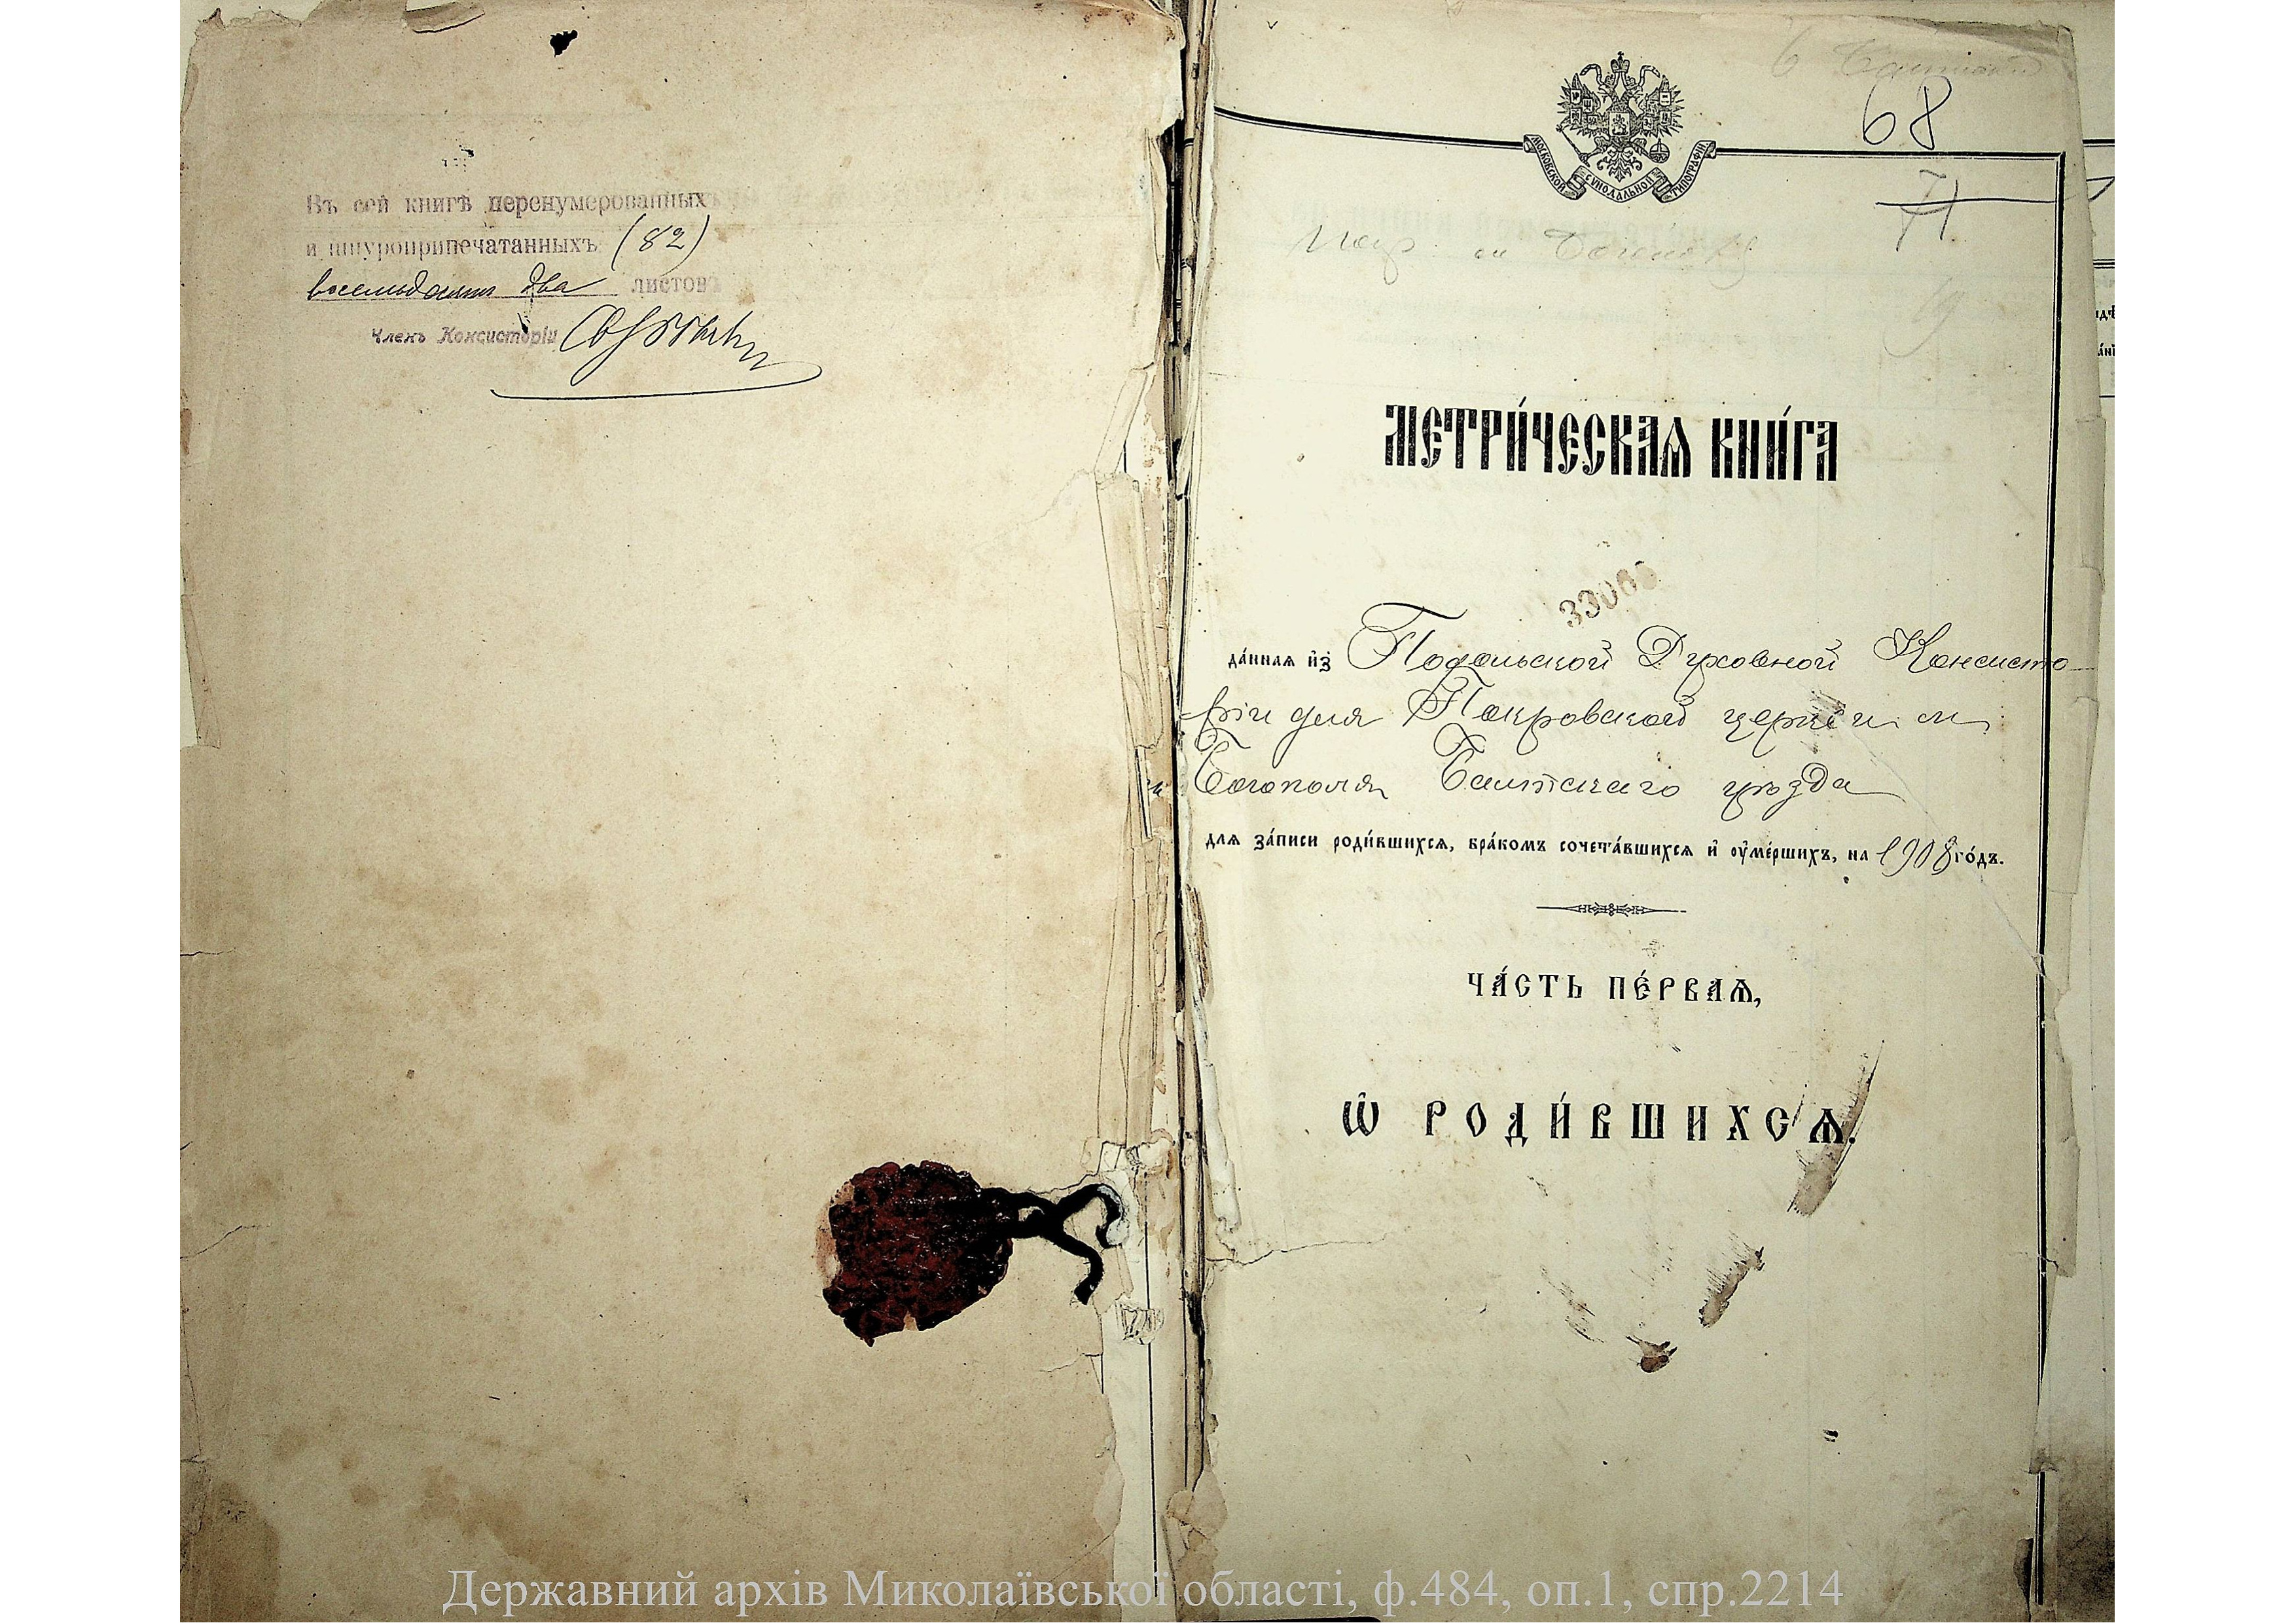 Въ сей книгѣ перенумерованныхъ
и шнуроприпечатанныхъ (82)
восемьдесятъ два листовъ
Членъ Консисторіи
68
71
МОСКОВСКОЙ СѴНОДАЛЬНОЙ ТИПОГРАФІИ
МЕТРИ́ЧЕСКАѦ КНИ́ГА
33000
да́ннаѧ и҆з̾ Подольской Духовной Консисто-
ріи для Покровской церкви м.
Богополя Балтскаго уѣзда
длѧ за́писи роди́вшихсѧ, бра́комъ сочета́вшихсѧ и҆ оу҆ме́ршихъ, на 1908 го́дъ.
ЧА́СТЬ ПЕ́РВАѦ,
Ѡ҆ РОДИ́ВШИХСѦ.
Державний архів Миколаївської області, ф.484, оп.1, спр.2214